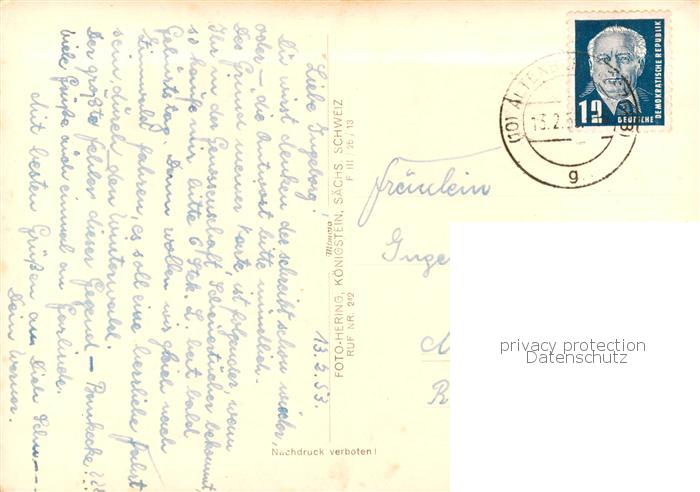 13.2.53.
Liebe Ingeborg!
Du wirst denken der schreibt schon wieder,
oder –, die Antwort bitte mündlich.
Der Grund meiner Karte ist folgender, wenn
Ihr in der Genossenschaft, bekommt,
so kaufe mir bitte 6 Stck. L. hat bald
Geburtstag. Dann wollen wir gleich nach
Zinnwald fahren, es soll eine herrliche Fahrt
sein, durch den Winterwald.
Der größte Fehler dieser Gegend –
viele Grüße auch einmal an Gerlinde.
Mit besten Grüßen an Dich
Dein Werner.
Mimosa
FOTO-HERING, KÖNIGSTEIN, SÄCHS. SCHWEIZ
RUF NR. 292
F III 26/13
Nachdruck verboten!
12
DEUTSCHE
DEMOKRATISCHE REPUBLIK
(10) ALTENB
13.2.5
g
Fräulein
Inge
privacy protection
Datenschutz